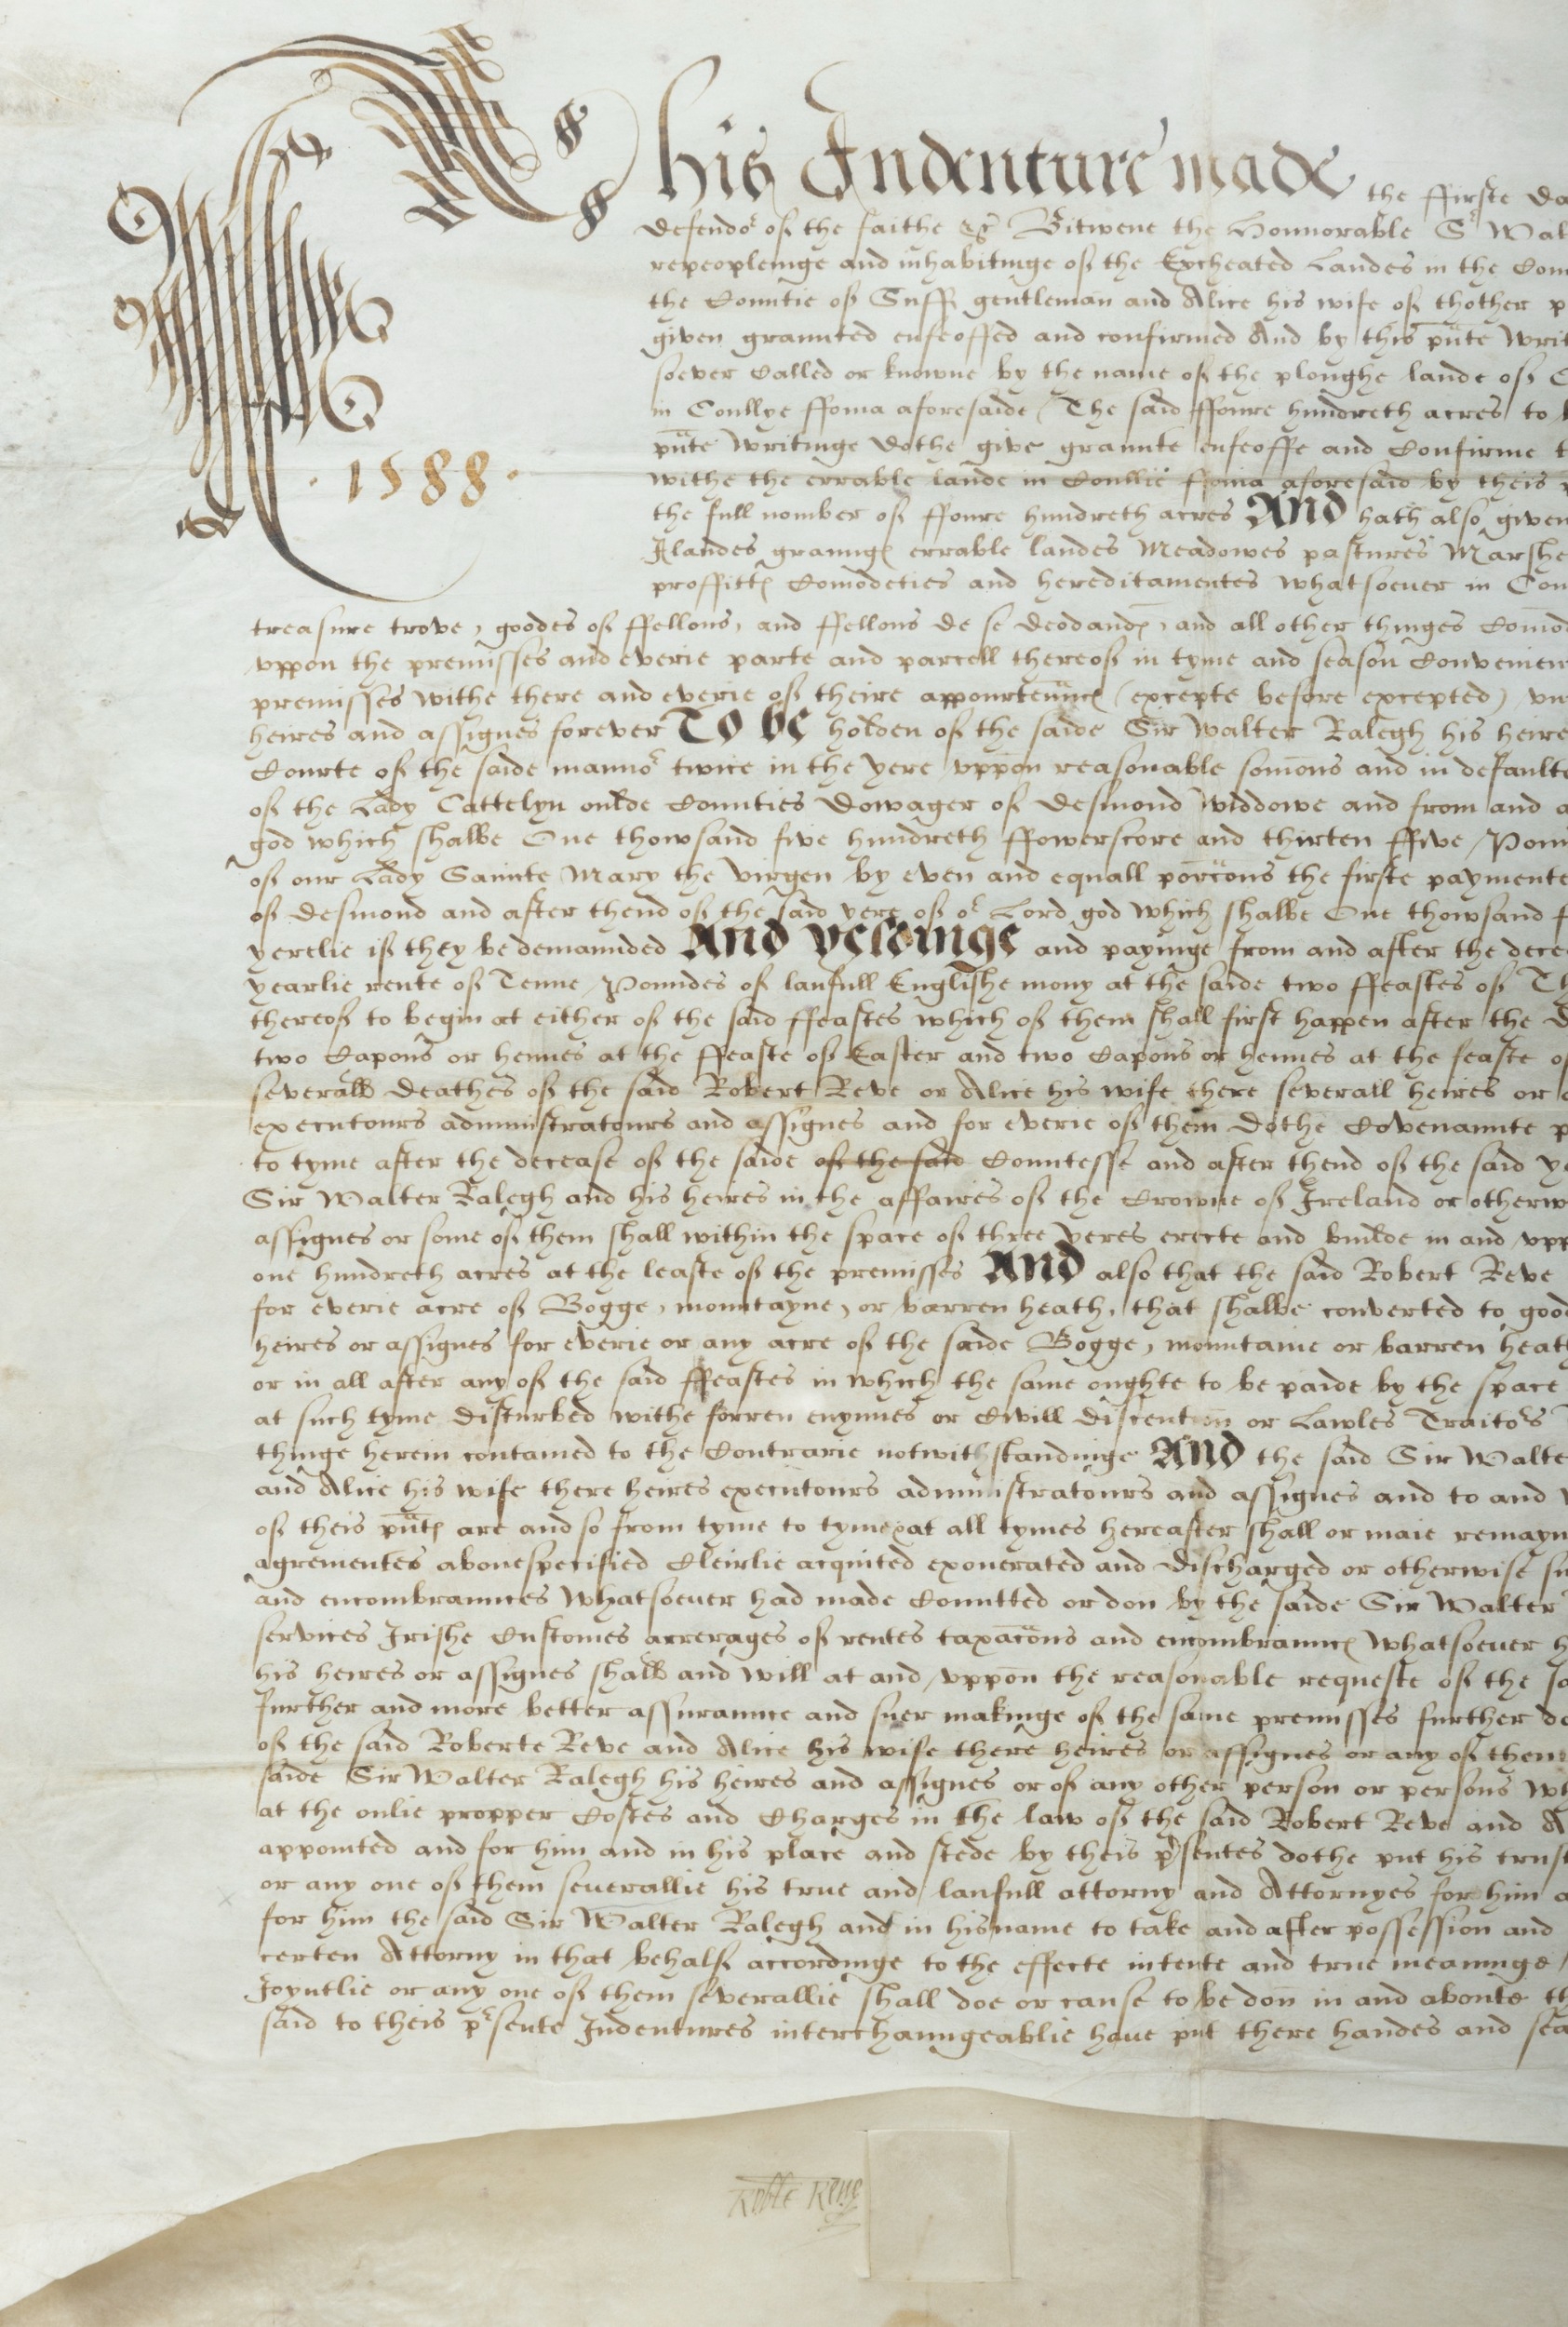 This Indenture made the ffirste da
defendor of the faithe &c Bitwene the Honnorable Sr Wal
repeoplenige and inhabitinge of the Excheated Landes in the Com
the Countie of Suff gentleman and Alice his wife of thother p
given graunted enfeoffed and confirmed And by this pñte writ
soever called or knowne by the name of the ploughe lande of C
in Coullye ffoma aforesaide The said ffoure hundreth acres to b
pñte writinge dothe give graunte enfeoffe and confirme t
withe the errable lande in Coullie ffoma aforesaid by theis p
the full nomber of ffoure hundreth acres And hath also given
Ilandes graunges errable landes Meadowes pastures Marshe
proffittes comodeties and hereditamentes whatsoever in Cou
·1588·
treasure trove, goodes of ffellons, and ffellons de se deodandes, and all other thinges comod
uppon the premisses and everie parte and parcell thereof in tyme and season convenien
premisses withe there and everie of theire appourtenñces (excepte before excepted) un
heires and assignes forever To be holden of the saide Sir Walter Ralegh his heire
Courte of the saide mannor twice in the yere uppon reasonable somons and in defaulte
of the Lady Cattelyn oulde Counties Dowager of Desmond widdowe and from and a
god which shalbe One thowsand five hundreth ffowerscore and thirten ffive Poun
of our Lady Sainte Mary the virgen by even and equall porcõns the firste paymente
of Desmond and after thend of the said yere of or Lord god which shalbe One thowsand f
yerelie if they be demaunded And yeldinge and payinge from and after the dece
yearlie rente of Tenne Poundes of laufull Englishe mony at the saide two ffeastes of Th
thereof to begin at either of the said ffeastes which of them shall first happen after the d
two Capons or hennes at the ffeaste of Easter and two Capons or hennes at the feaste of
severall deathes of the said Robert Reve or Alice his wife there severall heires or
executours administratours and assignes and for everie of them dothe covenaunte p
to tyme after the decease of the saide of the said Countesse and after thend of the said ye
Sir Walter Ralegh and his heires in the affaires of the Crowne of Ireland or otherw
assignes or some of them shall within the space of three yeres erecte and builde in and upp
one hundreth acres at the leaste of the premisses And also that the said Robert Reve
for everie acre of Bogge, mountayne, or barren heath, that shalbe converted to good
heires or assignes for everie or any acre of the saide Bogge, mountaine or barren heath
or in all after any of the said ffeastes in which the same oughte to be paide by the space
at such tyme disturbed withe forren enymies or Civill discention or Lawles Traitors
thinge herein contained to the contrarie notwithstandinge And the said Sir Walte
and Alice his wife there heires executours administratours and assignes and to and
of theis pñtes are and so from tyme to tyme at all tymes hereafter shall or maie remayn
agrementes abovespecified Cleirlie acquited exonerated and discharged or otherwise su
and encombraunces whatsoever had made comitted or don by the saide Sir Walter
services Irishe Customes arrerages of rentes taxacõns and encombraunces whatsoever h
his heires or assignes shall and will at and uppon the reasonable requeste of the sa
further and more better assuraunce and suer makinge of the same premisses further do
of the said Roberte Reve and Alice his wife there heires or assignes or any of them
saide Sir Walter Ralegh his heires and assignes or of any other person or persons wh
at the onlie propper Costes and Charges in the law of the said Robert Reve and A
appointed and for him and in his place and stede by theis prsentes dothe put his trust
or any one of them severallie his true and laufull attorny and Attornyes for him a
for him the said Sir Walter Ralegh and in his name to take and after possession and
certen Attorny in that behalf accordinge to the effecte intente and true meaninge
Joyntlie or any one of them severallie shall doe or cause to be don in and aboute th
said to theis prsente Indentures interchaungeablie have put there handes and sea
Robte Reve